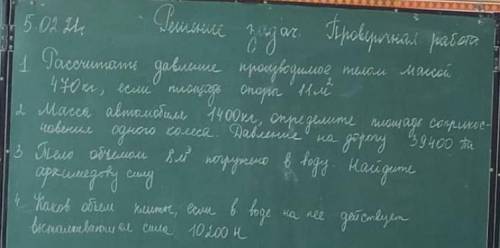 5.02.21г. Решение задач. Проверочная работа
1 Рассчитайте давление производимое телом массой
470кг, если площадь опоры 11м²
2. Масса автомобиля 1400кг, определите площадь соприкос-
новения одного колеса. Давление на дорогу 39400 Па
3 Тело объемом 8м³ погружено в воду. Найдите
архимедову силу
4. Каков объем плиты, если в воде на нее действует
выталкивающая сила 10200 Н